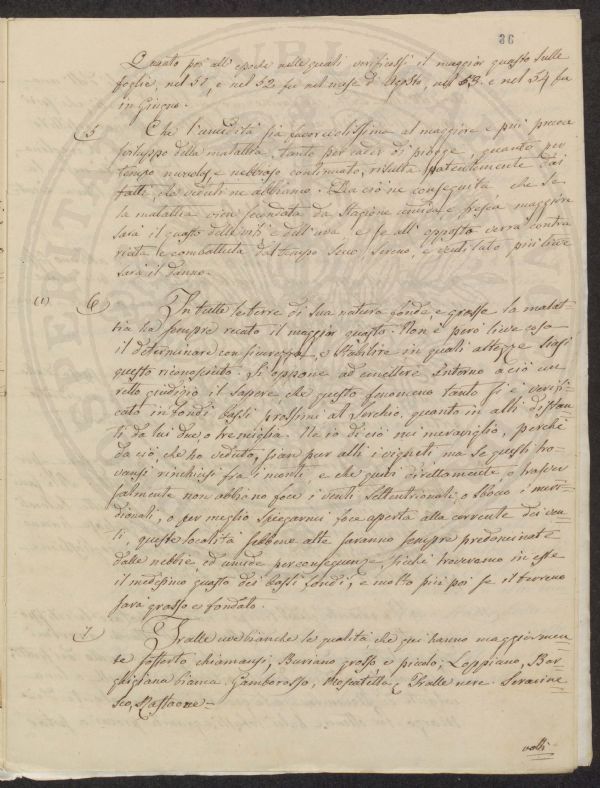 36
Quanto poi all'epoche nelle quali verificossi il maggior guasto sulle
foglie, nel 51, e nel 52 fu nel mese d'Agosto, nel 53 e nel 54 fu
in Giugno.
5 Che l'umidità sia favorevolissima al maggiore e più precoce
sviluppo della malattia, tanto per cader di piogge, quanto per
tempo nuvoloso e nebbioso continuato, risulta patentemente dai
fatti che veduti ne abbiamo. Da ciò ne conseguita che se
la malattia vien secondata da Stagione umida e fresca maggiore
sarà il guasto delle viti e dell'uva e se all'opposto verrà contra
riata e combattuta dal tempo secco, sereno, e ventilato più lieve
sarà il danno.
(1) 6 In tutte le terre di sua natura fonde e grosse la malat-
tia ha sempre recato il maggior guasto. Non è però lieve cosa
il determinare con sicurezza, e stabilire in quali altezze siasi
questo riconosciuto. Si oppone ad emettere intorno a ciò un
retto giudizio il sapere che questo fenomeno tanto si è verifi-
cato in fondi bassi prossimi al Serchio, quanto in altri distan-
ti da lui due o tre miglia. Ne io di ciò mi meraviglio, perchè
da ciò, che ho veduto, sian pur alti i vigneti ma se questi tro-
vansi rinchiusi fra i monti, e che quivi direttamente o trasver
salmente non abbiano foce i venti Settentrionali, o sbocco i meri-
dionali, o per meglio spiegarmi foce aperta alla corrente dei ven-
ti, queste località sebbene alte saranno sempre predominate
dalle nebbie, ed umide per conseguenza, sicchè troveremo in esse
il medesimo guasto dei bassi fondi, e molto più poi se il terreno
sarà grosso e fondato.
7 Fralle uve bianche le qualità che qui hanno maggiormen-
te sofferto chiamansi, Buriano grosso e picolo, Loppiano, Bar-
ghigiana bianca, Gamborosso, Moscatella, e Fralle nere. Seravine
sco, Massaone=
volti